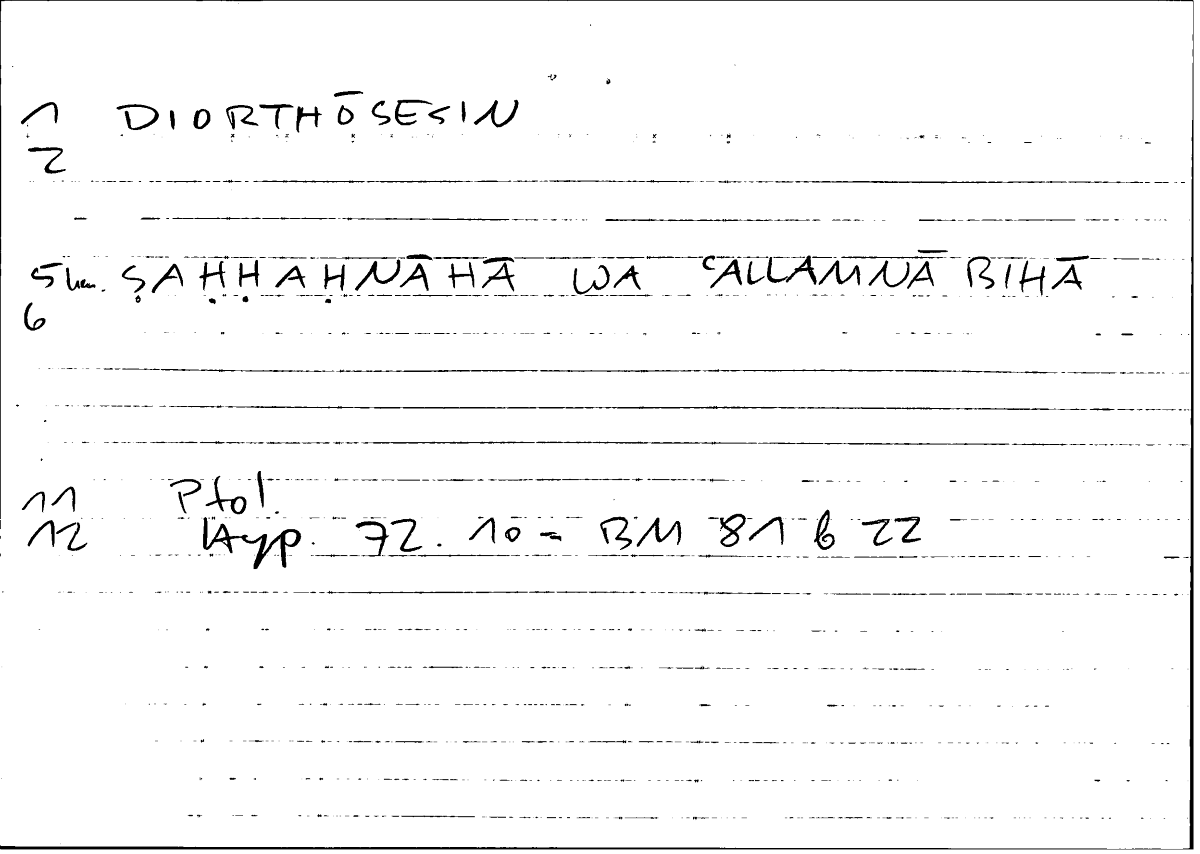 1 DIORTHŌSESIN
2
5 ṢAḤḤAḤNĀHĀ WA ʿALLAMNĀ BIHĀ
6
11 Ptol.
12 Hyp. 72.10 = BM 81 b 22